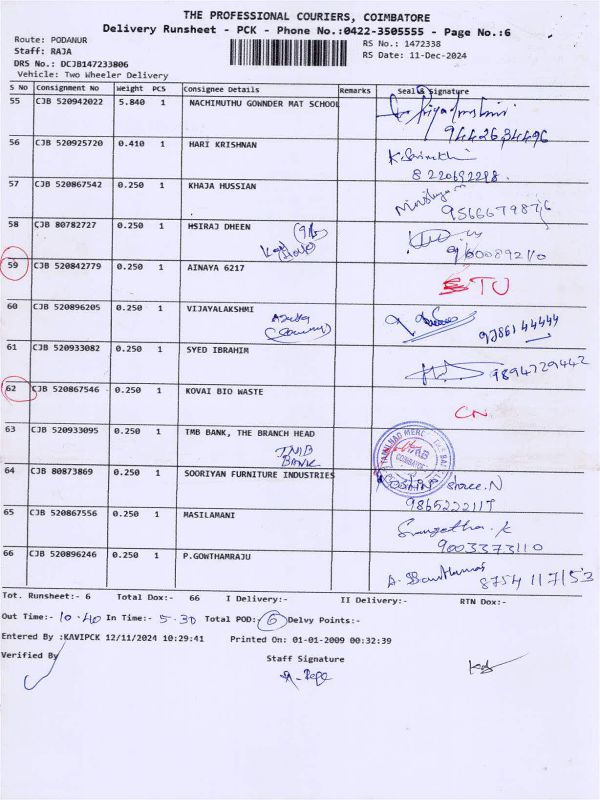 THE PROFESSIONAL COURIERS, COIMBATORE
Delivery Runsheet - PCK - Phone No.:0422-3505555 - Page No.:6
Route: PODANUR
RS No.: 1472338
Staff: RAJA
RS Date: 11-Dec-2024
DRS No.: DCJB147233806
Vehicle: Two Wheeler Delivery
S No Consignment No Weight PCS Consignee Details Remarks Seal & Signature
55 CJB 520942022 5.840 1 NACHIMUTHU GOWNDER MAT SCHOOL
9442634496
56 CJB 520925720 0.410 1 HARI KRISHNAN
8220692298.
57 CJB 520867542 0.250 1 KHAJA HUSSIAN
9566679876
58 CJB 80782727 0.250 1 HSIRAJ DHEEN
9600892110
59 CJB 520842779 0.250 1 AINAYA 6217
TU
60 CJB 520896205 0.250 1 VIJAYALAKSHMI
9786144444
61 CJB 520933082 0.250 1 SYED IBRAHIM
9894729442
62 CJB 520867546 0.250 1 KOVAI BIO WASTE
CN
63 CJB 520933095 0.250 1 TMB BANK, THE BRANCH HEAD
TMB
BANK
64 CJB 80873869 0.250 1 SOORIYAN FURNITURE INDUSTRIES
Shree.N
9865222117
65 CJB 520867556 0.250 1 MASILAMANI
Sangetha.K
9003373110
66 CJB 520896246 0.250 1 P.GOWTHAMRAJU
8754117153
Tot. Runsheet:- 6 Total Dox:- 66 I Delivery:- II Delivery:- RTN Dox:-
Out Time:- 10.40 In Time:- 5.30 Total POD:- 6 Delvy Points:-
Entered By :KAVIPCK 12/11/2024 10:29:41 Printed On: 01-01-2009 00:32:39
Verified By
Staff Signature